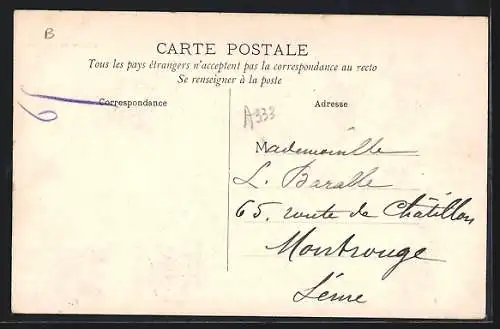 B
CARTE POSTALE
Tous les pays étrangers n'acceptent pas la correspondance au recto
Se renseigner à la poste
Correspondance
Adresse
A333
Mademoiselle
L. Baralle
65. route de Châtillon
Montrouge
Seine